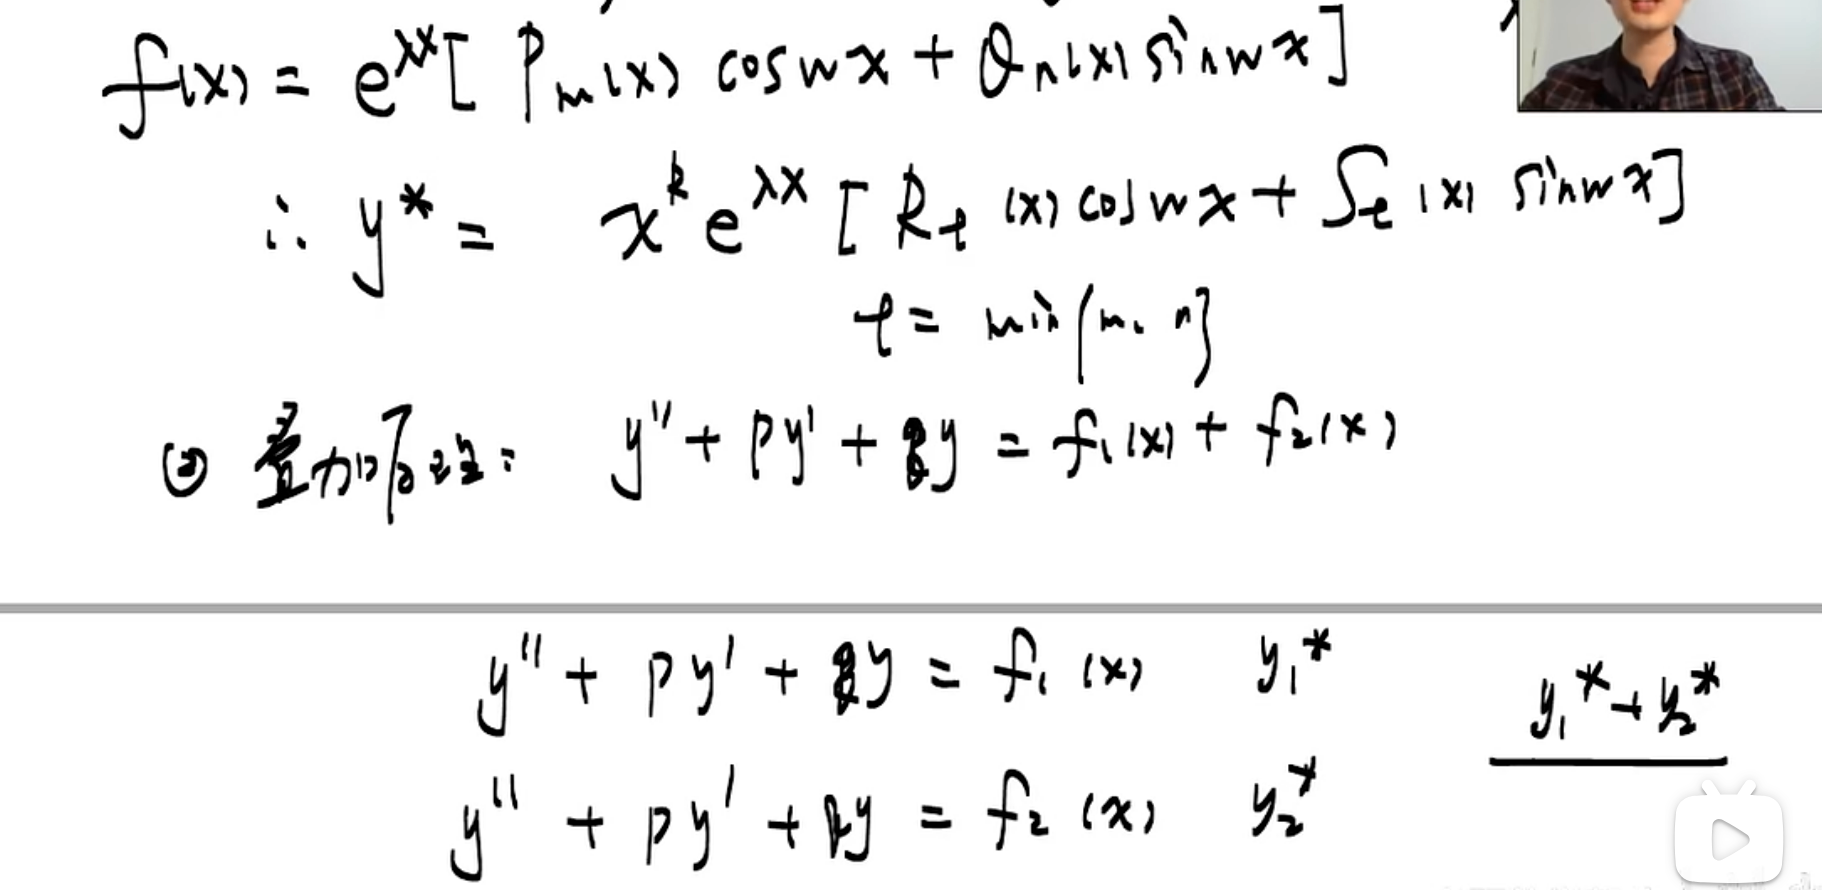 f(x) = e^{λx}[ P_m(x) cos wx + Q_n(x) sin wx ]
∴ y* = x^k e^{λx} [ R_l (x) cos wx + S_l (x) sin wx ]
l = min{m, n}
② 叠加原理: y'' + py' + qy = f₁(x) + f₂(x)
y'' + py' + qy = f₁ (x) y₁*
y₁* + y₂*
y'' + py' + qy = f₂ (x) y₂*